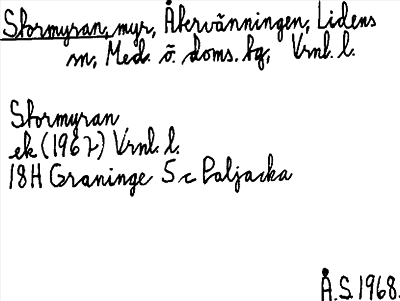 Stormyran, myr, Åkervänningen, Lidens
sn, Med. ö. doms. hg, Vrnl. l.
Stormyran
ek (1967) Vrnl. l.
18H Graninge 5 c Paljacka
Å.S. 1968.